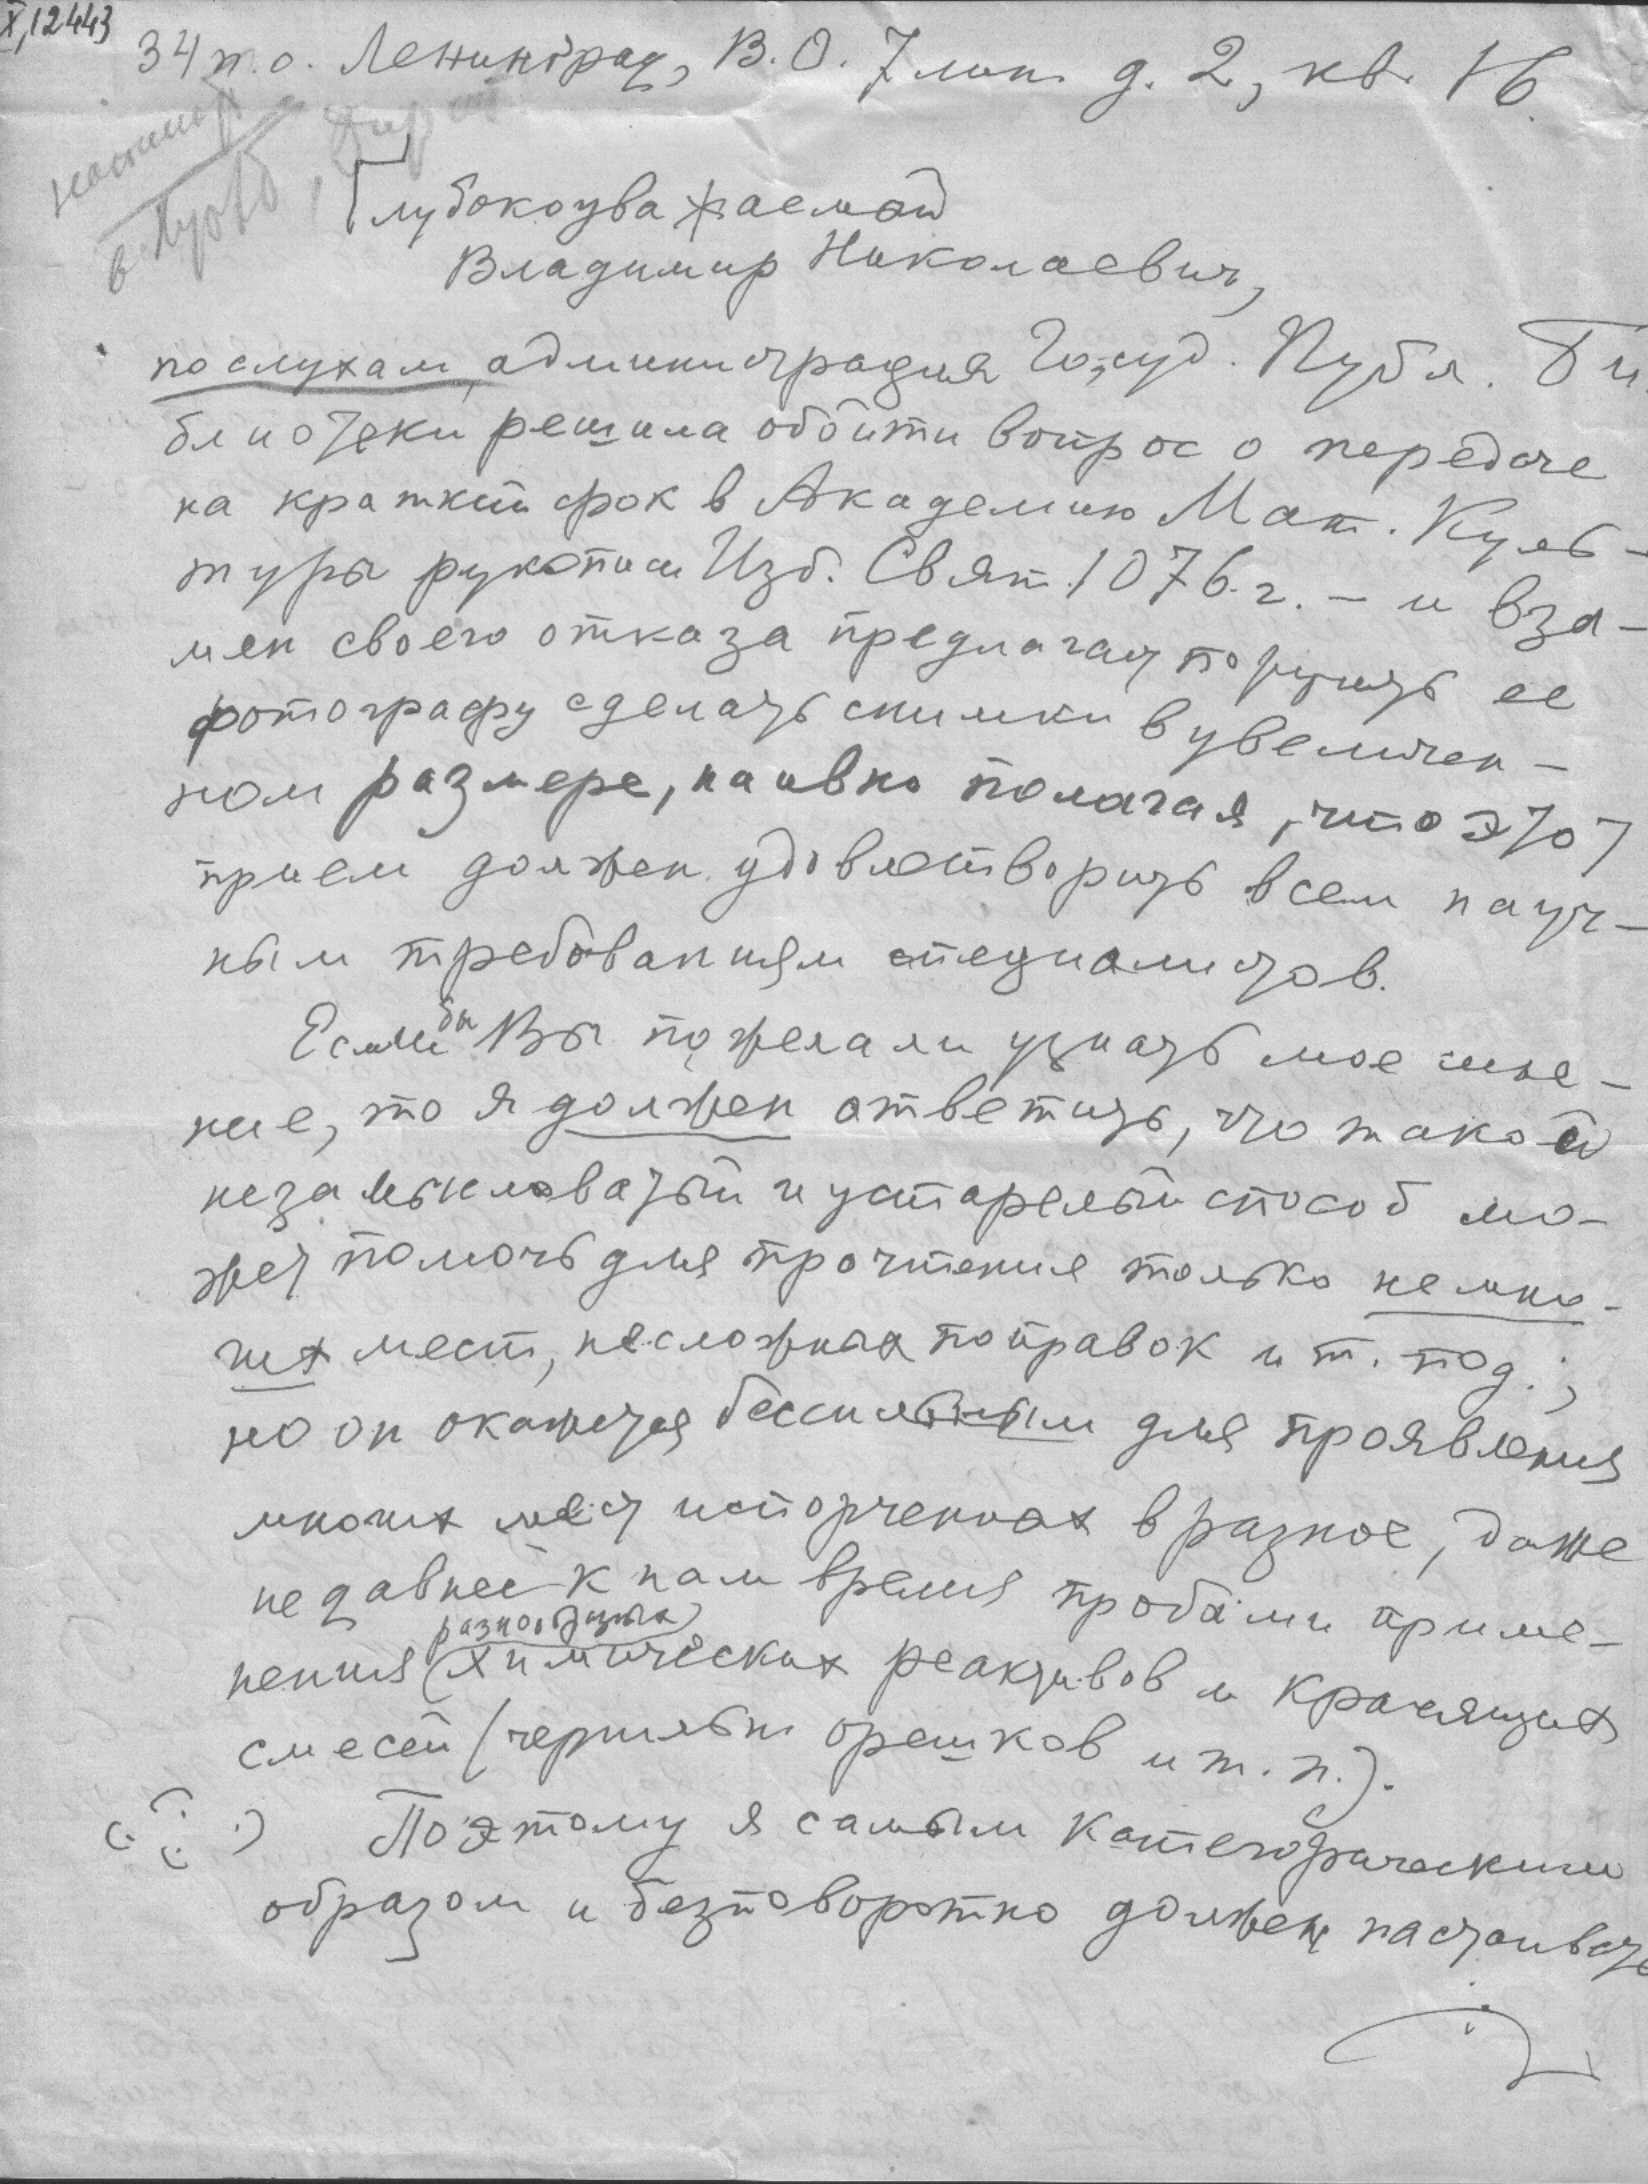 X,12443
34 п.о. Ленинград, В.О. 7 лин. д. 2, кв. 16.
Глубокоуважаемый
Владимир Николаевич,
по слухам, администрация Госуд. Публ. Би
блиотеки решила обойти вопрос о передаче
на краткий срок в Академию Мат. Куль-
туры рукописи Изб. Свят. 1076 г. – и вза-
мен своего отказа предлагает поручить ее
фотографу сделать снимки в увеличен-
ном размере, наивно полагая, что этот
прием должен удовлетворить всем науч-
ным требованиям специалистов.
Если бы Вы пожелали узнать мое мне-
ние, то я должен ответить, что такой
незамысловатый и устарелый способ мо-
жет помочь для прочтения только немно-
гих мест, несложных поправок и т. под.;
но он окажется бессильным для проявления
многих мест испорченных в разное, даже
недавнее к нам время пробами приме-
нения (разнообразных) химических реактивов и красящих
смесей (чернильн орешков и т. п.).
Поэтому я самым категорическим
образом и безповоротно должен настаивать